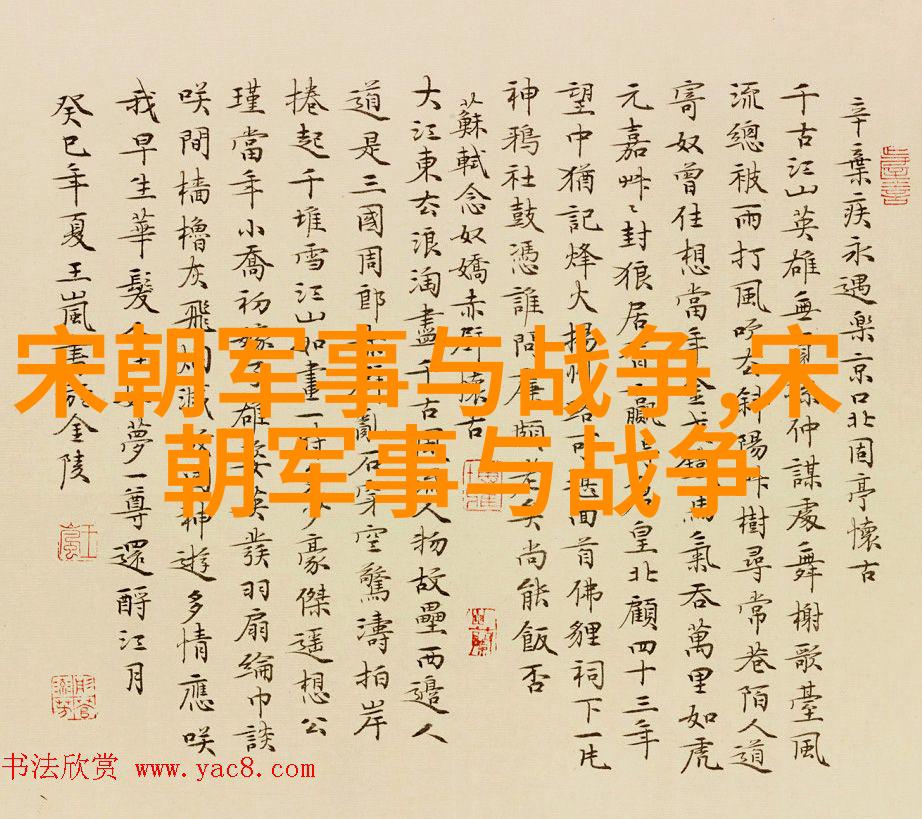 宋朝军事与战争,宋
朝军事与战争
辛棄疾永遇楽京口北固亭懷古
千古江山英雄無孫仲謀處舞榭歌臺風
流總被雨打風吹去斜陽艸樹尋常巷陌人道
寄奴曾住想當年金戈馬氣吞萬里如虎
元嘉艸〻封狼居胥贏皇北顧四十三年
望中猶記烽火揚州路可回首佛貍祠下一片
神鴉社鼓憑誰問廉頗老矣尚能飯否
蘇軾念奴嬌赤壁懷古
大江東去浪淘盡千古人物故壘西邊人
道是三國周郎亂石穿空驚濤拍岸
捲起千堆雪江山如畫一時多少豪傑遥想公
瑾當年小喬初嫁雄姿英發羽扇綸巾談
咲間檣櫓灰飛烟滅國神遊多情應咲
我早生華髮夢一尊還酹江月
癸巳年夏王嵐書於金陵
书法欣赏 www.yac8.com